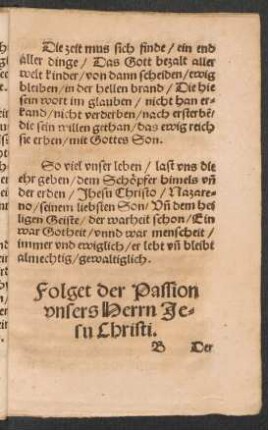 Die zeit mus sich finde / ein end
aller dinge / Das Gott bezalt aller
welt kinder / von dann scheiden / ewig
bleiben / in der hellen brand / Die hie
sein wort im glauben / nicht han er-
kand / nicht verderben / nach ersterbē /
die sein willen gethan / das ewig reich
sie erben / mit Gottes Son.
So viel vnser leben / last vns die
ehr geben / dem Schöpfer himels vñ
der erden / Jhesu Christo / Nazare-
no / seinem liebsten Son / Vñ dem hei
ligen Geiste / der warheit schon / Ein
war Gotheit / vnnd war menscheit /
immer vnd ewiglich / er lebt vñ bleibt
almechtig / gewaltiglich.
Folget der Passion
vnsers Herrn Je-
su Christi.
B Der